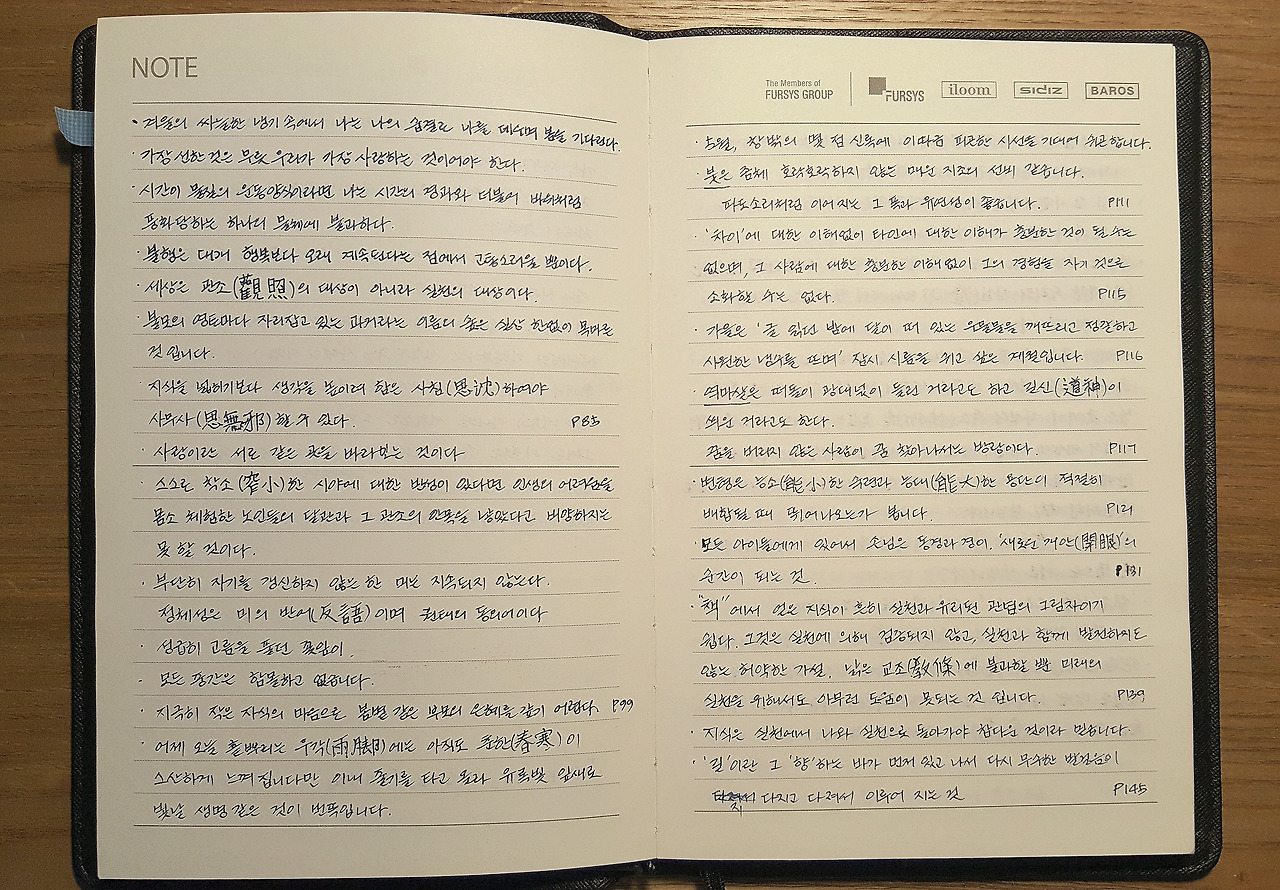 NOTE
· 겨울의 싸늘한 냉기 속에서 나는 나의 숨결로 나를 데우며 봄을 기다린다.
· 가장 선한 것은 무릇 우리가 가장 사랑하는 것이어야 한다.
· 시간이 물질의 운동양식이라면 나는 시간의 경과와 더불어 바위처럼
풍화당하는 하나의 물체에 불과하다.
· 불행은 대개 행복보다 오래 계속된다는 점에서 고통스러울 뿐이다.
· 세상은 관조(觀照)의 대상이 아니라 실천의 대상이다.
· 불모의 영토마다 자리잡고 있는 과거라는 이름의 숲은 실상 한없이 목마른
것입니다.
· 지식을 넓히기보다 생각을 높이려 함은 사침(思沈)하여야
사무사(思無邪)할 수 있다. P85
· 사랑이란 서로 같은 곳을 바라보는 것이다
· 스스로 착소(窄小)한 시야에 대한 반성이 있다면 인생의 어려움을
몸소 체험한 노인들의 달관과 그 관조의 안목을 낡았다고 비양하지는
못 할 것이다.
· 부단히 자기를 갱신하지 않는 한 미는 지속되지 않는다.
정체성은 미의 반어(反語)이며 권태의 동의어이다
· 성급히 고름을 풀던 꽃잎이.
· 모든 중간은 함몰하고 없습니다.
· 지극히 작은 자식의 마음으로 봄볕 같은 부모의 은혜를 갚기 어렵다. P99
· 어제 오늘 흩뿌리는 우각(雨脚)에는 아직도 춘한(春寒)이
스산하게 느껴집니다만 이내 줄기를 타고 올라 유록빛 잎새로
빛날 생명 같은 것이 번뜩입니다.
The Members of
FURSYS GROUP
FURSYS
iloom
SIDIZ
BAROS
· 5월, 창밖의 몇 점 신록에 이따금 피곤한 시선을 기대어 쉬곤합니다.
· 붓은 좀체 호락호락하지 않는 매운 지조의 선비 같습니다.
파도소리처럼 이어지는 그 폭과 유연성이 좋습니다. P111
· '차이'에 대한 이해없이 타인에 대한 이해가 충분한 것이 될 수는
없으며, 그 사람에 대한 충분한 이해없이 그의 경험을 자기 것으로
소화할 수는 없다. P115
· 가을은 '글 읽던 밤에 달이 떠 있는 우물물을 깨뜨리고 정갈하고
시원한 냉수를 뜨며' 잠시 시름을 쉬고 싶은 계절입니다. P116
· 역마살은 떠돌이 광대넋이 들린 거라고도 하고 길신(道神)이
씌운 거라고도 한다.
꿈을 버리지 않은 사람이 꿈 찾아나서는 방랑이다. P117
· 변혁은 능소(能小)한 수련과 능대(能大)한 용단이 적절히
배합될 때 뛰어나오는가 봅니다. P121
· 모든 아이들에게 있어서 손님은 동경과 경이. '새로운 개안(開眼)'의
순간이 되는 것. P131
· "책"에서 얻은 지식이 흔히 실천과 유리된 관념의 그림자이기
쉽다. 그것은 실천에 의해 검증되지 않고, 실천과 함께 발전하지도
않는 허약한 가설. 낡은 교조(敎條)에 불과할 뿐 미래의
실천을 위해서도 아무런 도움이 못되는 것입니다. P139
· 지식은 실천에서 나와 실천으로 돌아가야 참다운 것이라 믿습니다.
· '길'이란 그 '향'하는 바가 먼저 있고 나서 다시 무수한 발걸음이
다지고 다져서 이루어 지는 것 P145